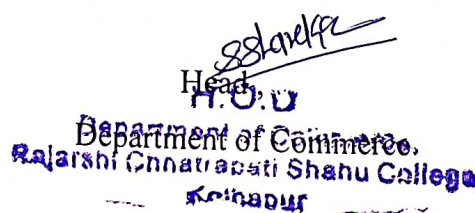 Head,
H.O.D
Department of Commerce,
Department of Commerce,
Rajarshi Chhatrapati Shahu College
Kolhapur